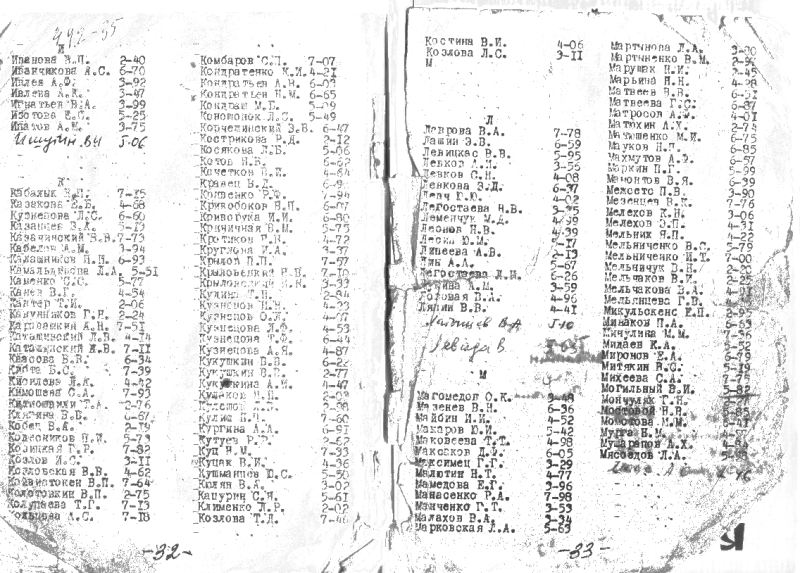 492-35
И
Иванова В.П. 2-40
Иванчикова А.С. 6-70
Ивлев А.Ф. 3-92
Ивлева А.К. 5-47
Игнатьев В.А. 3-99
Изотова Е.С. 5-25
Ипатов А.М. 3-75
5-06
К
Кабалык 7-15
Казакова Е.Б. 4-68
Кузнецова Л.С. 6-60
Казанцев В.А. 5-13
Казачинский В.В. 7-73
Кабелов А.М. 3-34
Калашников Н.Н. 6-93
Камальдинова Л.А. 5-51
Каменко С.С. 5-77
Канев В.Г. 4-54
Кантер Т.И. 2-06
Капунников Г.Н. 2-24
Карповшкин А.Н. 7-51
Каташинский Л.В. 4-14
Каташинский Я.В. 7-11
Квасова Б.В. 6-34
Кибта Б.С. 7-39
Киселева Л.К. 4-42
Кимошева С.А. 7-93
Т.А. 2-76
Клягина В.Б. 4-67
Кобец В.А. 2-19
Колесников Н.И. 5-73
Козицкая Г.Р. 7-82
Козлов И.С. 3-11
Козловская В.В. 4-62
Койвиатокен В.П. 7-64
Колотовкин В.П. 2-75
Колупаева Т.Г. 7-13
Кольцова А.С. 7-18
-32-
Комбаров С.П. 7-07
Кондратенко К.И. 4-21
Кондратьев А.Н. 6-03
Кондратьев Н.М. 6-65
Кондраш М.Б. 5-09
Коношонок Л.С. 5-49
Корчелинский Э.В. 6-47
Кострикова Р.Д. 2-12
Косякова Л.Б. 5-06
Котов Н.В. 6-62
Кочетков В.И. 4-84
Кравец В.Д.
Кравченко Р.Ф. 7-94
Кривобоков В.Н. 6-07
Криворучка И.И. 6-80
Криничная В.М. 5-75
Кротиков Г.Н. 4-72
Круглова И.А. 6-37
Крылов В.П. 7-57
Крыловецкий В.Н. 7-10
Крыловецкий И.Н. 3-33
Кудиш Г.Н. 2-94
Кузнецов Н.Н. 4-33
Кузнецов О.Л. 4-07
Кузнецова Л.Ф. 4-53
Кузнецова Т.Ф. 6-44
Кузнецова А.Я. 4-87
Кукушкин В.В. 6-22
Кукушкин В.В. 2-77
Кукушкина А.И. 4-47
Кулаков Н.П.
Кулешов
Кулиш Н.П. 7-60
Кургина А.А. 6-91
Кутуев Р.Р. 2-62
Куц В.М. 7-33
Куцак В.И. 4-36
Кушманцев Ю.С. 5-50
Килян В.А. 3-02
Капурин С.Н. 5-61
Клименко Л.Р. 2-02
Козлова Т.Л. 7-46
Костина В.И. 4-06
Козлова Л.С. 3-11
М
Л
Лаврова В.А. 7-78
Лашин Э.В. 6-59
Левицкас В.В. 5-95
Левков А.Н. 3-56
Левков С.Н. 4-08
Левкова Э.Д. 6-37
Левач Ю.Ю. 4-02
Легостаева Н.В. 3-75
Леменчук М.Д. 4-99
Леонов Н.В. 4-39
Лесин Ю.М. 5-17
Липеева А.В. 2-13
Лин А.А. 5-67
Легостаева Л.И. 6-26
А.М. 3-59
Лозовая В.А. 4-96
Ляпин В.В. 4-41
5-10
М
Магомедов О.К. 3-49
Мазенев В.Н. 6-36
Майбин И.И. 4-52
Макаров Ю.И. 5-42
Маковеева Т.Т. 4-98
Максаков Д.Ф. 6-05
Максимец Г.Г. 3-29
Малютин Н.Т. 4-77
Мамедова Е.Г. 3-96
Манасенко Р.А. 7-98
Манченко Г.Т. 3-53
Малахов В.А. 3-34
Марковская Л.А. 5-63
-33-
Мартынова Л.А. 3-80
Мартыненко В.М.
Марущак Н.И. 3-45
Марьина Н.Н. 4-28
Матвеев В.В. 6-51
Матвеева Г.С. 6-87
Матросов А.Ф. 4-01
Матюхин А.У. 2-74
Матюшенко М.И. 6-75
Мауков Н.П. 6-85
Махмутов А.Ф. 6-57
Маркин П.Г. 5-99
Мамонтов В.Я. 6-39
Межесте П.В. 3-90
Мезенцев В.К. 7-76
Мелехов К.Н. 3-06
Мелехов Э.П. 4-31
Мельник Я.П. 4-22
Мельниченко В.С. 5-79
Мельниченко И.Т. 7-00
Мельничук В.Н. 2-20
Мельчаков В.И. 2-25
Мельчакова В.А. 4-91
Мельянцева Г.В. 4-91
Микульскенс Е.П. 2-95
Минаков П.А. 6-63
Мичулина М.М. 7-36
Мидаев К.А. 5-52
Миронов Е.А. 6-79
Митякин В.С. 5-19
Михеева С.А. 7-75
Могильный В.И. 5-82
Мончулях Г.Н.
Мостовой Н.В. 6-85
Момотова М.М. 6-41
Мурга Н.М.
Мушарапов А.Х.
Мясоедов Л.А. 5-98